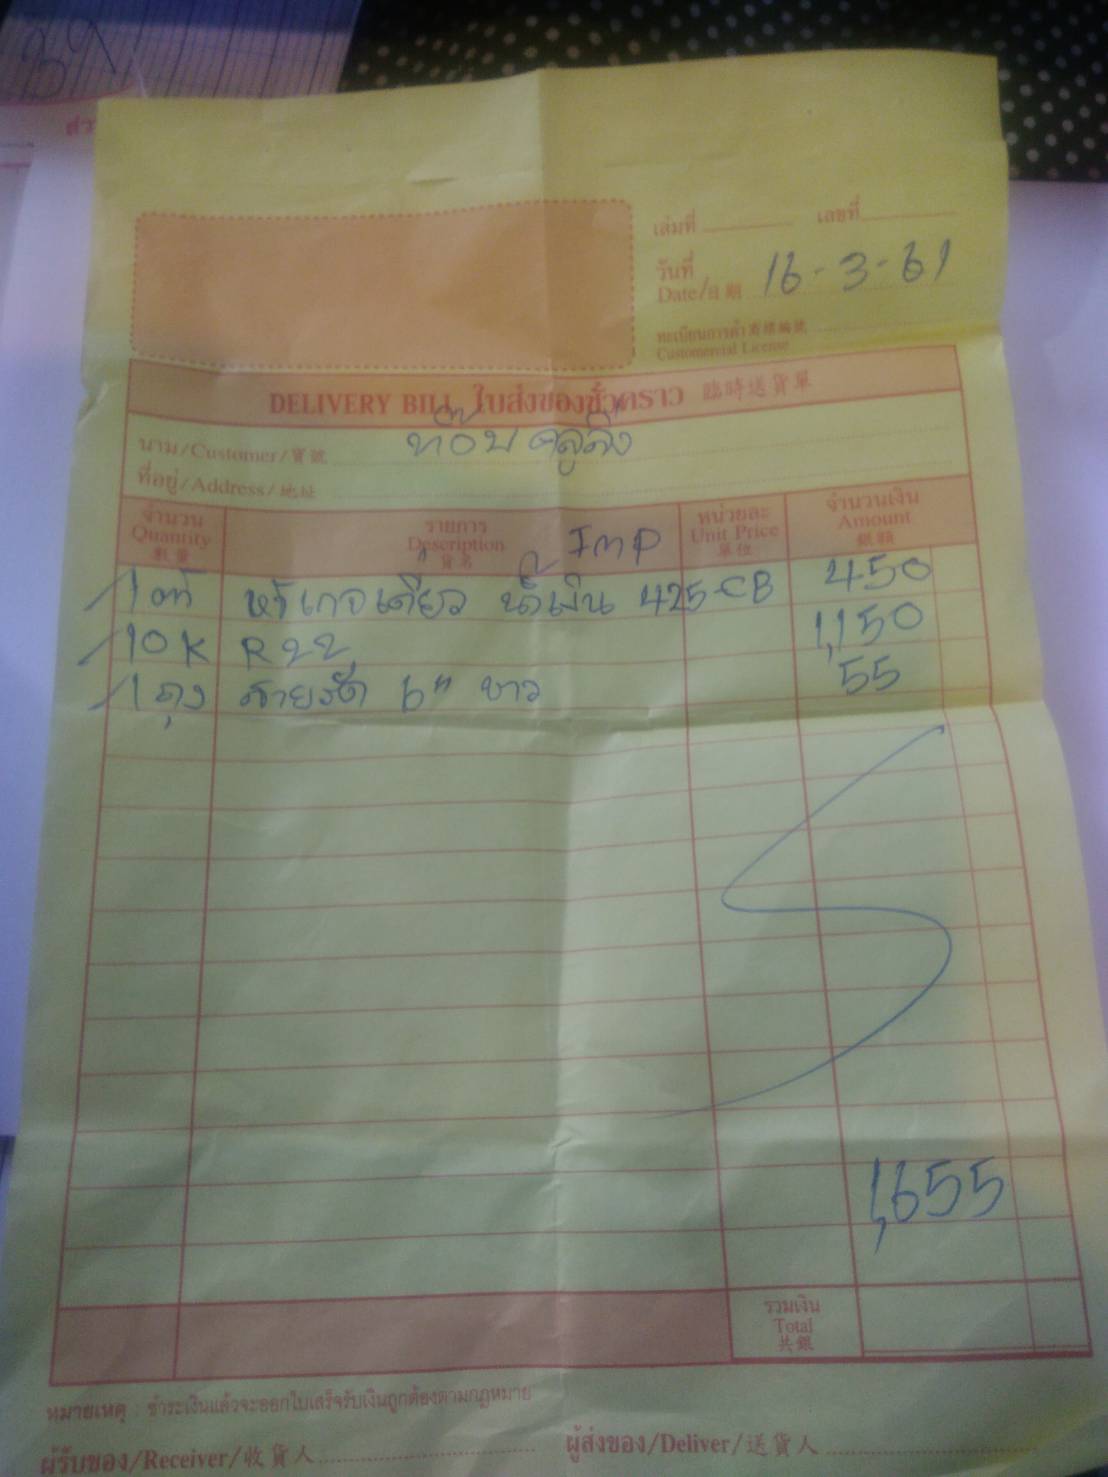 39
ส่ว
เล่มที่ เลขที่
วันที่
Date/日期 16-3-61
ทะเบียนการค้า 商標編號
Customercial License
DELIVERY BILL ใบส่งของชั่วคราว 臨時送貨單
นาม/Customer/寶號 ท๊อบ คูลลิ่ง
ที่อยู่/Address/地址
จำนวน รายการ หน่วยละ จำนวนเงิน
Quantity Description Unit Price Amount
數量 貨名 單位 銀額
IMP
1 ตัว หัวเกจเดี่ยว น้ำเงิน 425-CB 450
10 K R22 1,150
1 ถุง สายรัด 6" ขาว 55
1,655
รวมเงิน
Total
共銀
หมายเหตุ : ชำระเงินแล้วจะออกใบเสร็จรับเงินถูกต้องตามกฎหมาย
ผู้รับของ/Receiver/收貨人 ผู้ส่งของ/Deliver/送貨人